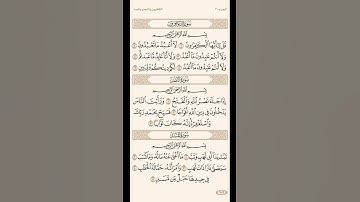 سُورَةُ الكَافِرُونَ
بِسْمِ اللَّهِ الرَّحْمَٰنِ الرَّحِيمِ
قُلْ يَا أَيُّهَا الْكَافِرُونَ ١ لَا أَعْبُدُ مَا تَعْبُدُونَ ٢
وَلَا أَنتُمْ عَابِدُونَ مَا أَعْبُدُ ٣ وَلَا أَنَا عَابِدٌ مَّا عَبَدتُّمْ ٤
وَلَا أَنتُمْ عَابِدُونَ مَا أَعْبُدُ ٥ لَكُمْ دِينُكُمْ وَلِيَ دِينِ ٦
سُورَةُ النَّصْرِ
بِسْمِ اللَّهِ الرَّحْمَٰنِ الرَّحِيمِ
إِذَا جَاءَ نَصْرُ اللَّهِ وَالْفَتْحُ ١ وَرَأَيْتَ النَّاسَ
يَدْخُلُونَ فِي دِينِ اللَّهِ أَفْوَاجًا ٢ فَسَبِّحْ بِحَمْدِ رَبِّكَ
وَاسْتَغْفِرْهُ إِنَّهُ كَانَ تَوَّابًا ٣
سُورَةُ المَسَدِ
بِسْمِ اللَّهِ الرَّحْمَٰنِ الرَّحِيمِ
تَبَّتْ يَدَا أَبِي لَهَبٍ وَتَبَّ ١ مَا أَغْنَىٰ عَنْهُ مَالُهُ وَمَا كَسَبَ ٢
سَيَصْلَىٰ نَارًا ذَاتَ لَهَبٍ ٣ وَامْرَأَتُهُ حَمَّالَةَ الْحَطَبِ ٤
فِي جِيدِهَا حَبْلٌ مِّن مَّسَدٍ ٥